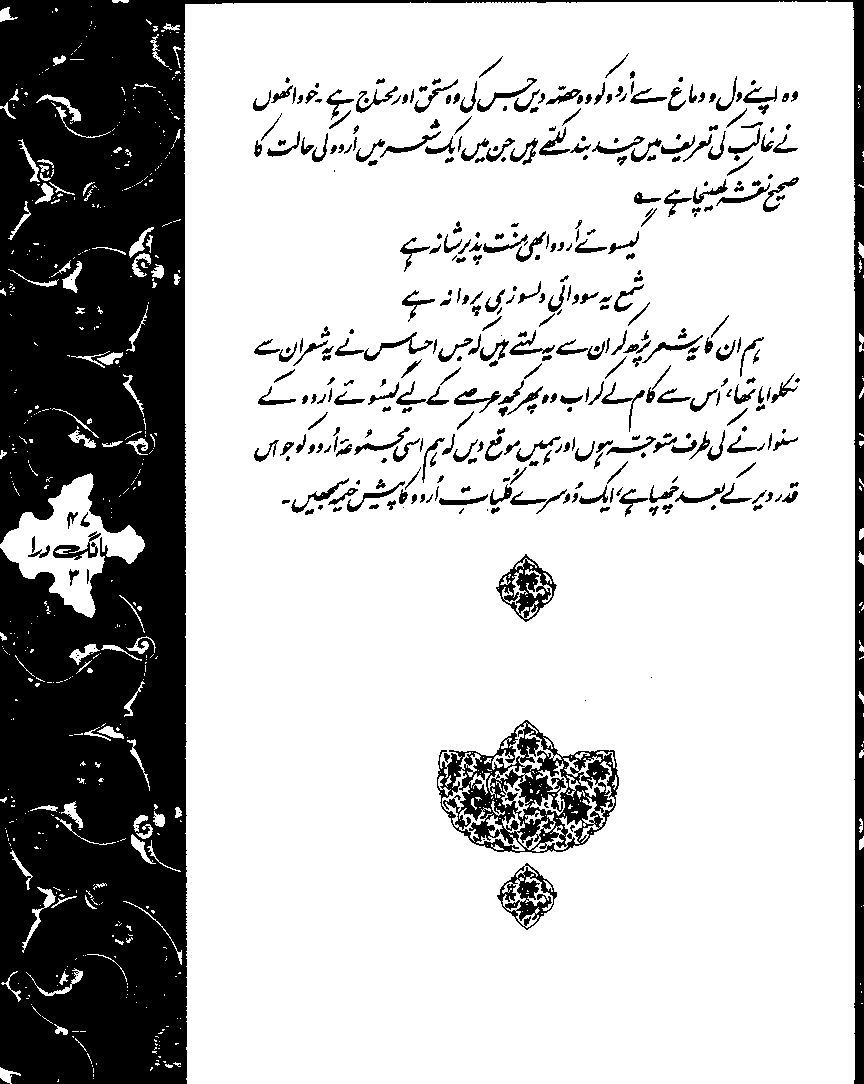 وہ اپنے دل و دماغ سے اُردو کو وہ حصّہ دیں جس کی وہ مستحق اور محتاج ہے۔ خود انھوں
نے غالبؔ کی تعریف میں چند بند لکھے ہیں جن میں ایک شعر میں اُردو کی حالت کا
صحیح نقشہ کھینچا ہے ؎
گیسوئے اُردو ابھی منّت پذیرِ شانہ ہے
شمع یہ سودائیِ دلسوزیِ پروانہ ہے
ہم ان کا یہ شعر پڑھ کر ان سے یہ کہتے ہیں کہ جس احساس نے یہ شعر ان سے
نکلوایا تھا، اُس سے کام لے کر اب وہ پھر کچھ عرصے کے لیے گیسُوئے اُردو کے
سنوارنے کی طرف متوجّہ ہوں اور ہمیں موقع دیں کہ ہم اسی مجمُوعۂ اُردو کو جو اس
قدر دیر کے بعد چُھپا ہے، ایک دُوسرے کُلیّاتِ اُردو کا پیش خیمہ سمجھیں۔
۴۷
بانگِ درا
۳۱